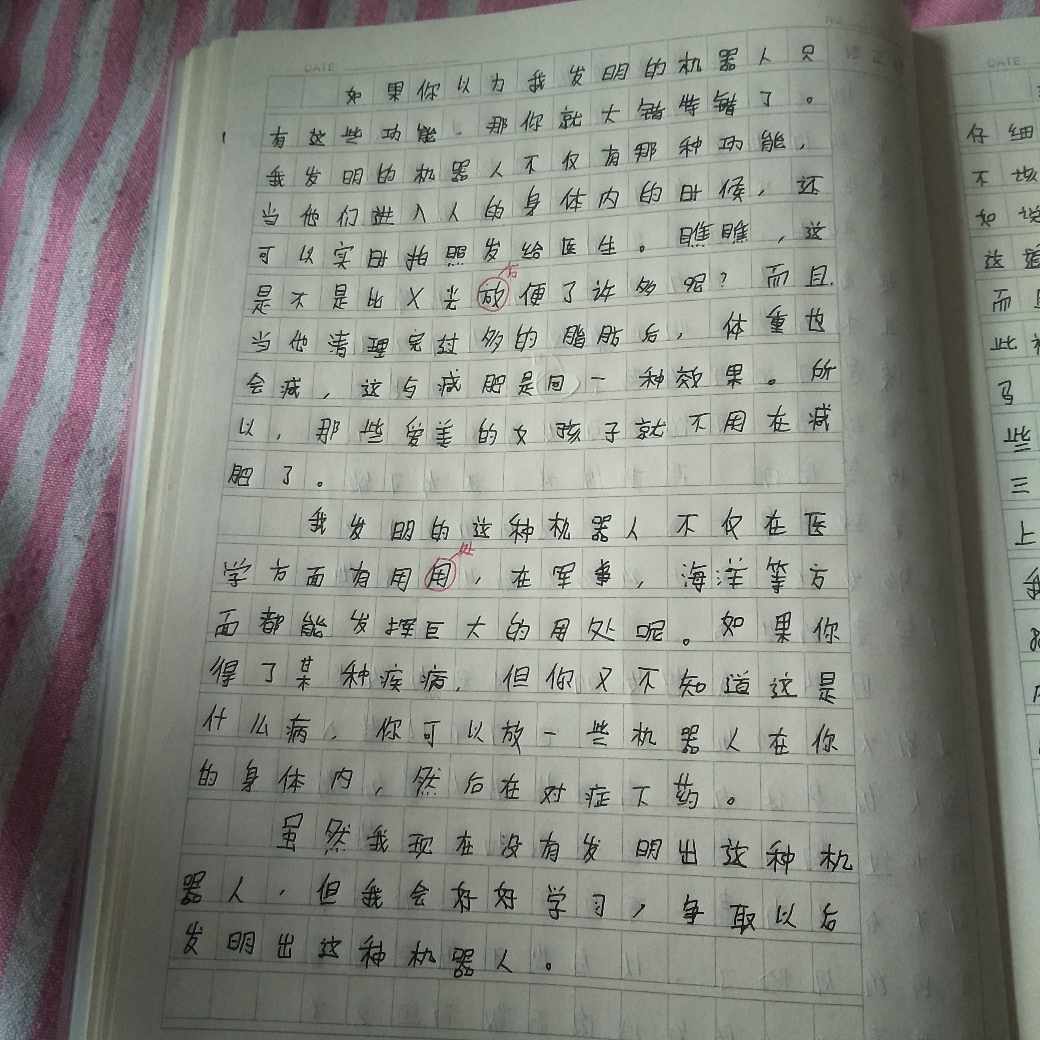 DATE
如果你以为我发明的机器人只
有这些功能.那你就大错特错了。
我发明的机器人不仅有那种功能,
当他们进入人的身体内的时候,还
可以实时拍照发给医生。瞧瞧,这
是不是比X光放便了许多呢?而且.
当他清理完过多的脂肪后,体重也
会减,这与减肥是同一种效果。所
以,那些爱美的女孩子就不用在减
肥了。
我发明的这种机器人不仅在医
处
学方面有用用,在军事,海洋等方
面都能发挥巨大的用处呢。如果你
得了某种疾病,但你又不知道这是
什么病,你可以放一些机器人在你
的身体内,然后在对症下药。
虽然我现在没有发明出这种机
器人,但我会好好学习,争取以后
发明出这种机器人。
DATE
仔细
不该
如说
这
而且
此
马
些
三
上
我